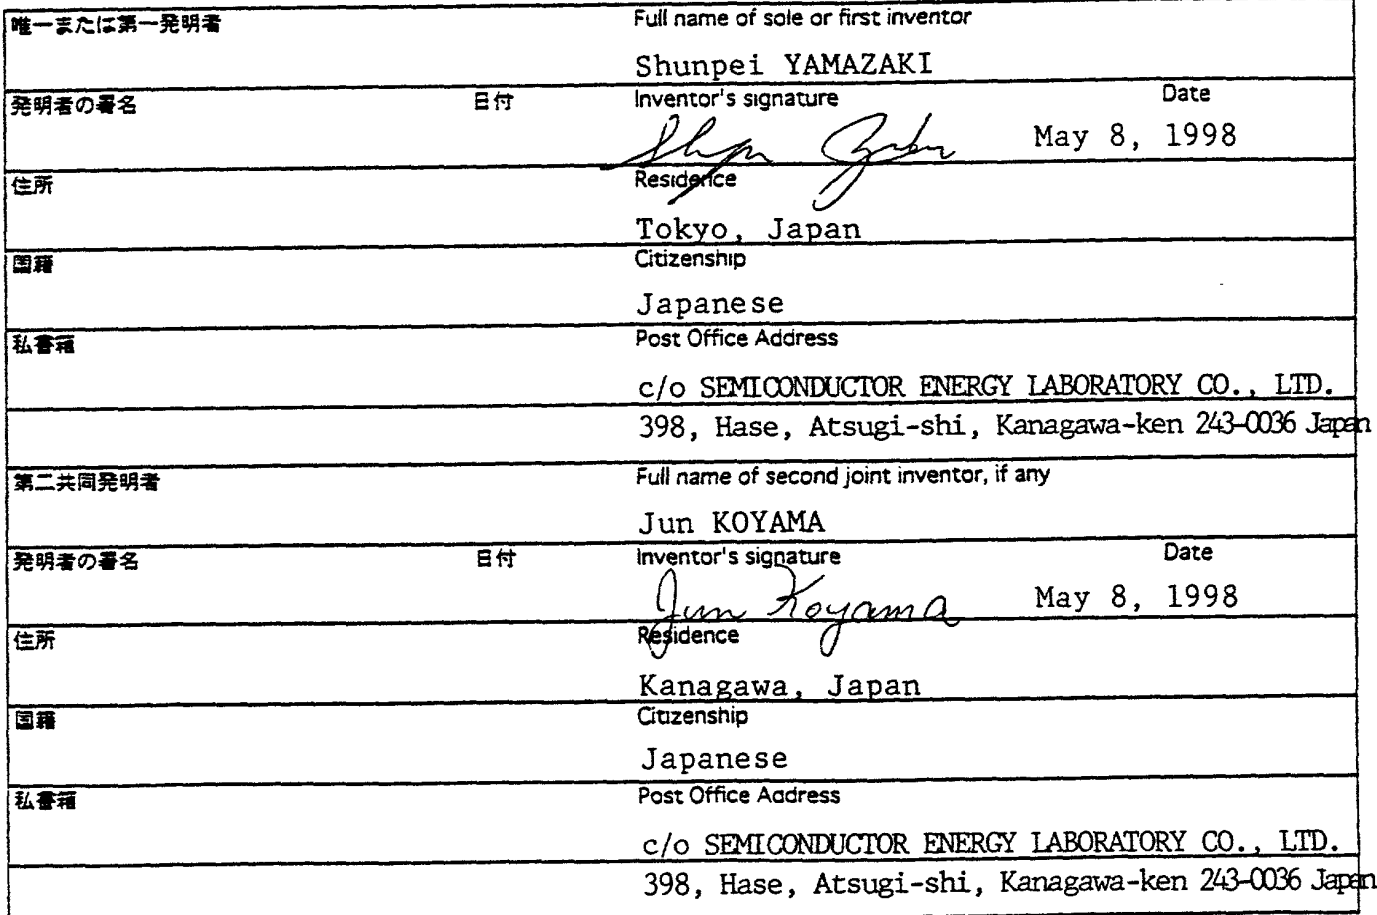 唯一または第一発明者 Full name of sole or first inventor
Shunpei YAMAZAKI
発明者の署名 日付 Inventor's signature Date
May 8, 1998
住所 Residence
Tokyo, Japan
国籍 Citizenship
Japanese
私書箱 Post Office Address
c/o SEMICONDUCTOR ENERGY LABORATORY CO., LTD.
398, Hase, Atsugi-shi, Kanagawa-ken 243-0036 Japan
第二共同発明者 Full name of second joint inventor, if any
Jun KOYAMA
発明者の署名 日付 Inventor's signature Date
Jun Koyama May 8, 1998
住所 Residence
Kanagawa, Japan
国籍 Citizenship
Japanese
私書箱 Post Office Address
c/o SEMICONDUCTOR ENERGY LABORATORY CO., LTD.
398, Hase, Atsugi-shi, Kanagawa-ken 243-0036 Japan